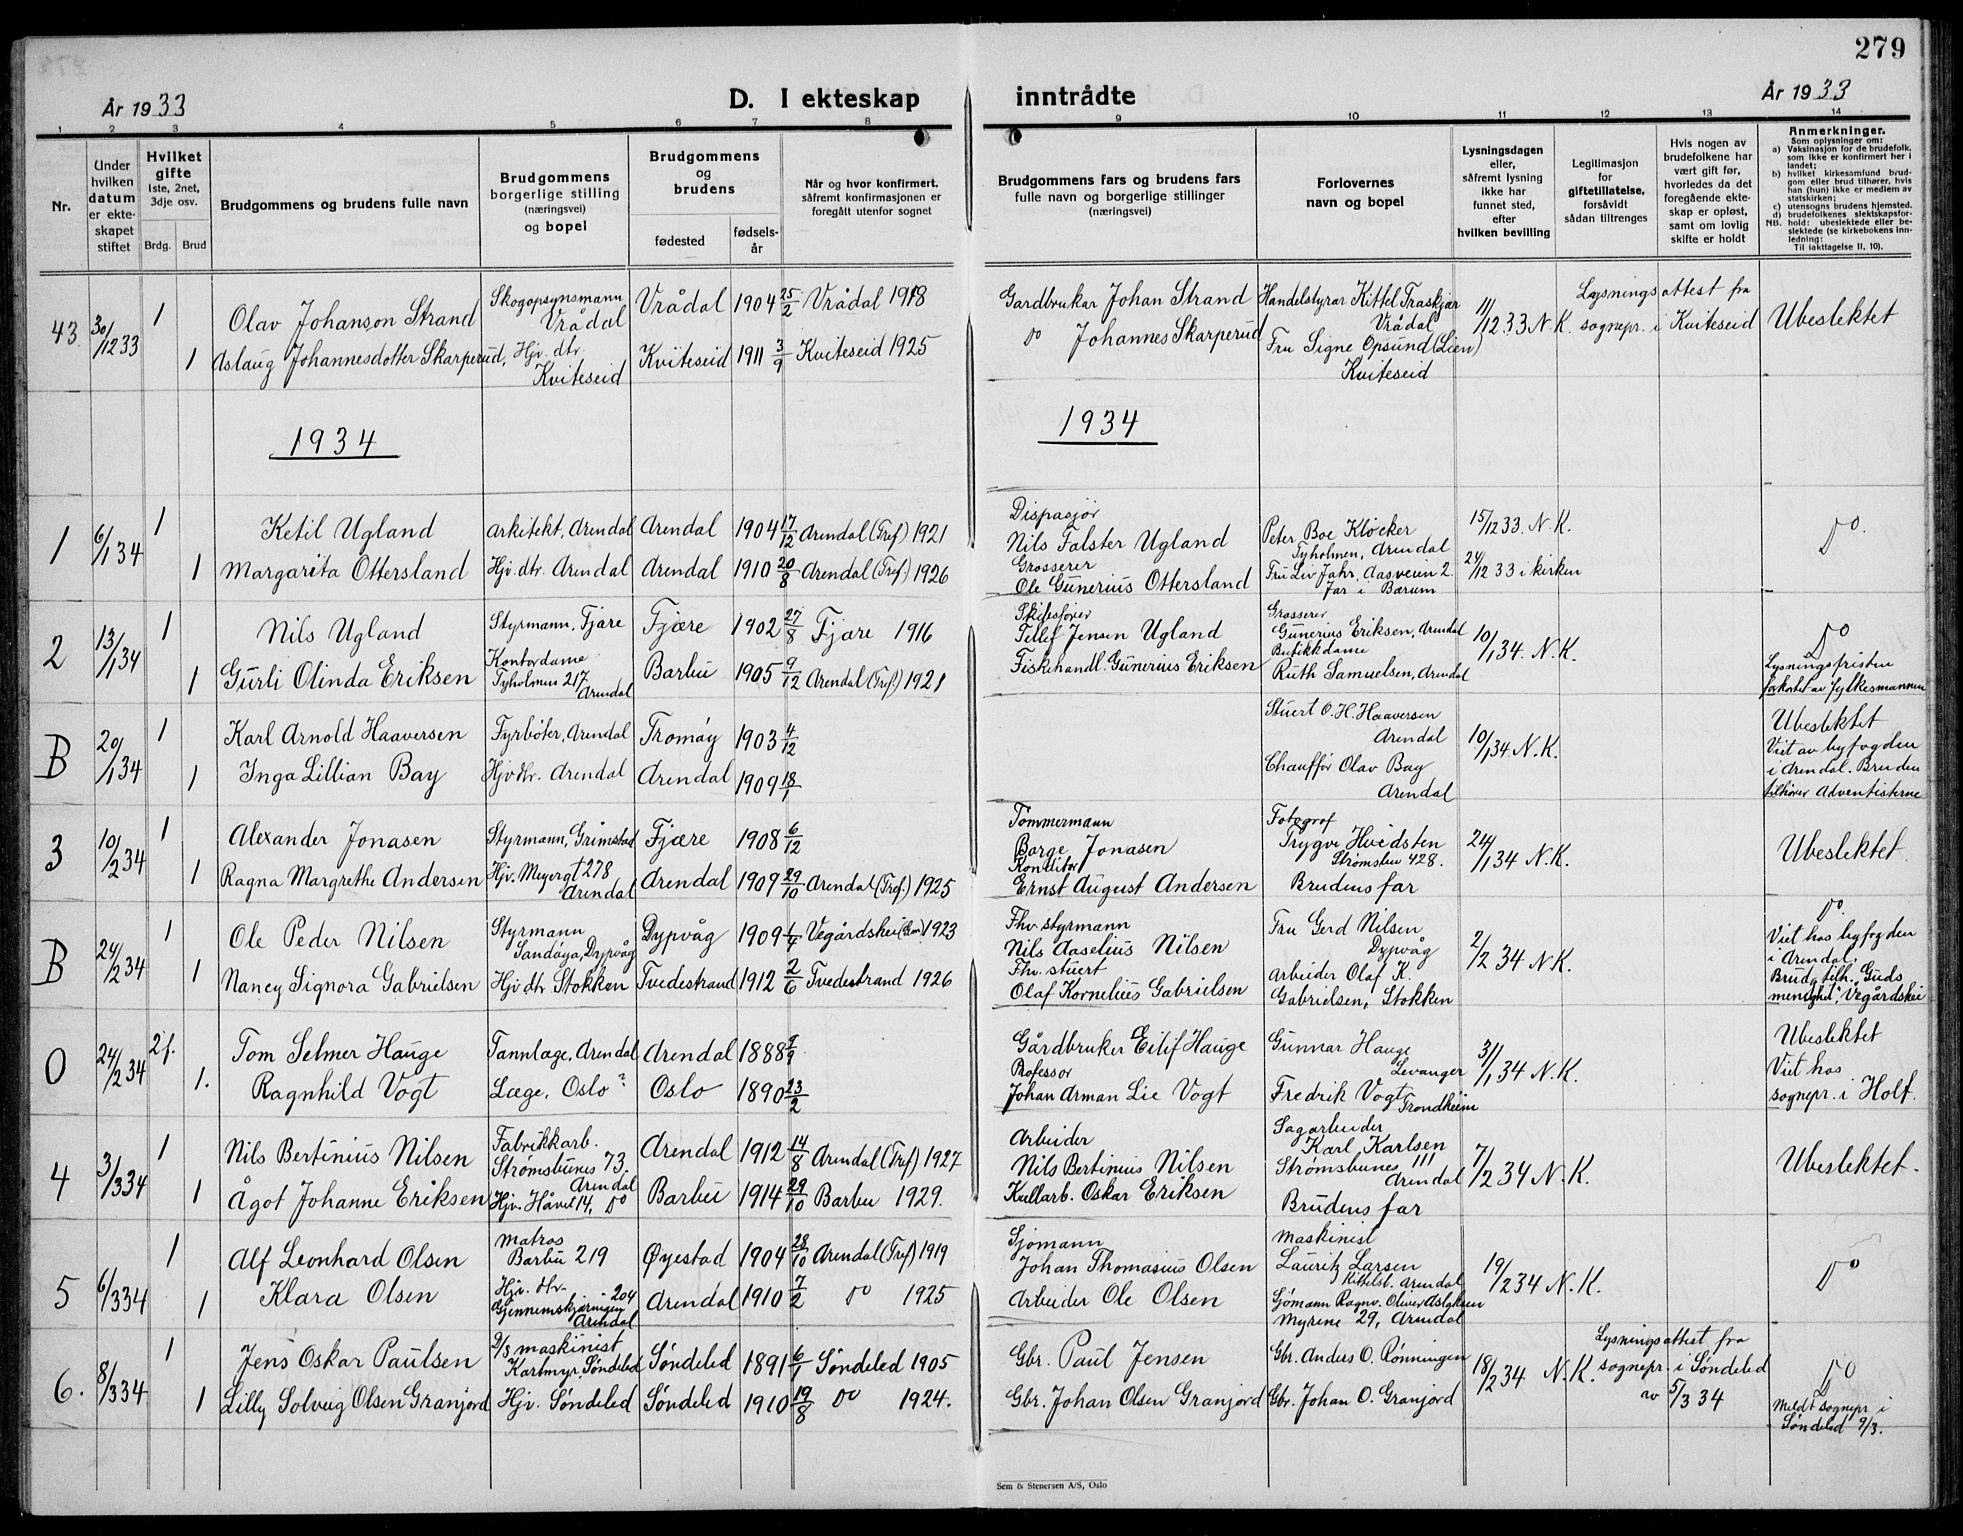 279
År 1933
D. I ekteskap inntrådte
År 1933
1 2 3 4 5 6 7 8 9 10 11 12 13 14
Nr.
Under hvilken datum er ekteskapet stiftet
Hvilket gifte
1ste, 2net, 3dje osv.
Brdg. Brud
Brudgommens og brudens fulle navn
Brudgommens borgerlige stilling (næringsvei) og bopel
Brudgommens og brudens
fødested
fødselsår
Når og hvor konfirmert, såfremt konfirmasjonen er foregått utenfor sognet
Brudgommens fars og brudens fars fulle navn og borgerlige stillinger (næringsvei)
Forlovernes navn og bopel
Lysningsdagen eller, såfremt lysning ikke har funnet sted, efter hvilken bevilling
Legitimasjon for giftetillatelse, forsåvidt sådan tiltrenges
Hvis nogen av brudefolkene har vært gift før, hvorledes da det foregående ekteskap er opløst, samt om lovlig skifte er holdt
Anmerkninger.
Som oplysninger om:
a) Vaksinasjon for de brudefolk, som ikke er konfirmert her i landet;
b) hvilket kirkesamfund brudgom eller brud tilhører, hvis han (hun) ikke er medlem av statskirken;
c) utensogns brudens hjemsted.
d) brudefolkenes slektskapsforhold: ubeslektede eller beslektede (se kirkebokens innledning:
NB.
Til iakttagelse II, 10).
43 30/12 33 1 Olav Johanson Strand Skogopsynsmann Vrådal Vrådal 1904 25/2 Vrådal 1918 Gardbrukar Johan Strand Handelstyrar Kittel Traskjær Vrådal 11/12 33 N.K. Lysningsattest fra sognepr. i Kviteseid Ubeslektet
1 Aslaug Johannesdotter Skarperud, Hjv. dtr. Kviteseid Kviteseid 1911 3/9 Kviteseid 1925 Do Johannes Skarperud Fru Signe Opsund (Lien) Kviteseid
1934
1934
1 6/1 34 1 Ketil Ugland Arkitekt, Arendal Arendal 1904 17/12 Arendal (Tref) 1921 Dispasjør Nils Falster Ugland Peter Boe Kløcker Tyholmen, Arendal 15/12 33. N.K. Do.
1 Margarita Ottersland Hjv. dtr. Arendal Arendal 1910 20/8 Arendal (Tref.) 1926 Grosserer Ole Gunerius Ottersland Fru Liv Jahr, Aasveien 2. Jar i Bærum 24/12 33 i kirken
2 13/1 34 1 Nils Ugland Styrmann, Fjære Fjære 1902 27/8 Fjære 1916 Skibsfører Tellef Jensen Ugland Grosserer Gunerius Eriksen, Arendal 10/1 34. N.K. Do Lysningsfristen forkortet av fylkesmannen
1 Gurli Olinda Eriksen Kontordame Tyholmen 217 Arendal Barbu 1905 9/12 Arendal (Tref.) 1921 Fiskehandl. Gunerius Eriksen Butikkdame Ruth Samuelsen, Arendal
B 20/1 34 1 Karl Arnold Haaversen Fyrbøter, Arendal Tromøy 1903 4/12 Stuert O.H. Haaversen Arendal 10/1 34 N.K. Ubeslektet Viet av byfogden i Arendal. Bruden tilhører Adventisterne
1 Inga Lillian Bay Hjv dtr. Arendal Arendal 1909 18/1 Chauffør Olav Bay Arendal
3 10/2 34 1 Alexander Jonasen Styrmann, Grimstad Fjære 1908 6/12 Tømmermann Børge Jonasen Fotograf Trygve Hvidsten Strømsbu 428. 24/1 34 N.K. Ubeslektet.
1 Ragna Margrethe Andersen Hjv. Meyergt 278 Arendal Arendal 1909 29/10 Arendal (Tref.) 1925 Konditor Ernst August Andersen Brudens far
B 24/2 34 1 Ole Peder Nilsen Styrmann Sandøya, Dypvåg Dypvåg 1909 Vegårdshei 1923 Fhv. styrmann Nils Aaselius Nilsen Fru Gerd Nilsen Dypvåg 2/2 34 N.K. Do. Viet hos byfogden i Arendal. Brudg. tilh. "Guds menighet", Vegårdshei
1 Nancy Signora Gabrielsen Hjv. dtr Stokken Tvedestrand 1912 2/6 Tvedestrand 1926 Fhv. stuert Olaf Kornelius Gabrielsen Arbeider Olaf K. Gabrielsen, Stokken
O 24/2 34 2 f. Tom Selmer Hauge Tannlæge, Arendal Arendal 1888 Gårdbruker Eilif Hauge Gunnar Hauge Levanger 31/1 34 N.K. Ubeslektet Viet hos sognepr. i Holt.
1. Ragnhild Vogt Læge, Oslo ? Oslo 1890 23/2 Professor Johan Arman Lie Vogt Fredrik Vogt Trondheim
4 3/3 34 1 Nils Bertinius Nilsen Fabrikkarb. Strømsbunes 73. Arendal Arendal 1912 14/8 Arendal (Tref) 1927 Arbeider Nils Bertinius Nilsen Sagarbeider Karl Karlsen Strømsbunes 111 Arendal 7/2 34 N.K. Ubeslektet.
1 Ågot Johanne Eriksen Hjv. Håvet 14, Do Barbu 1914 29/10 Barbu 1929. Kullarb. Oskar Eriksen Brudens far
5 6/3 34 1 Alf Leonhard Olsen Matros Barbu 219 Øyestad 1904 28/10 Arendal (Tref) 1919 Sjømann Johan Thomasius Olsen Maskinist Lauritz Larsen Kittelsb. Arendal 19/2 34 N.K. Do
1 Klara Olsen Hjv. dtr. Gjennemskjæringen 204 Arendal Arendal 1910 7/2 Do 1925 Arbeider Ole Olsen Sjømann Ragnv. Oliver Aslaksen Myrene 29, Arendal
6. 8/3 34 1 Jens Oskar Paulsen D/S maskinist Kartmyr, Søndeled Søndeled 1891 6/1 Søndeled 1905 Gbr. Paul Jensen Gbr. Anders O. Rønningen 18/2 34 N.K. Lysningsattest fra sognepr. i Søndeled av 5/3 34 Do Meldt sognepr. i Søndeled 9/3.
1 Lilly Solveig Olsen Granjord Hjv. Søndeled Søndeled 1910 19/8 Do 1924. Gbr. Johan Olsen Granjord Gbr. Johan O. Granjord
Sem & Stenersen A/S, Oslo